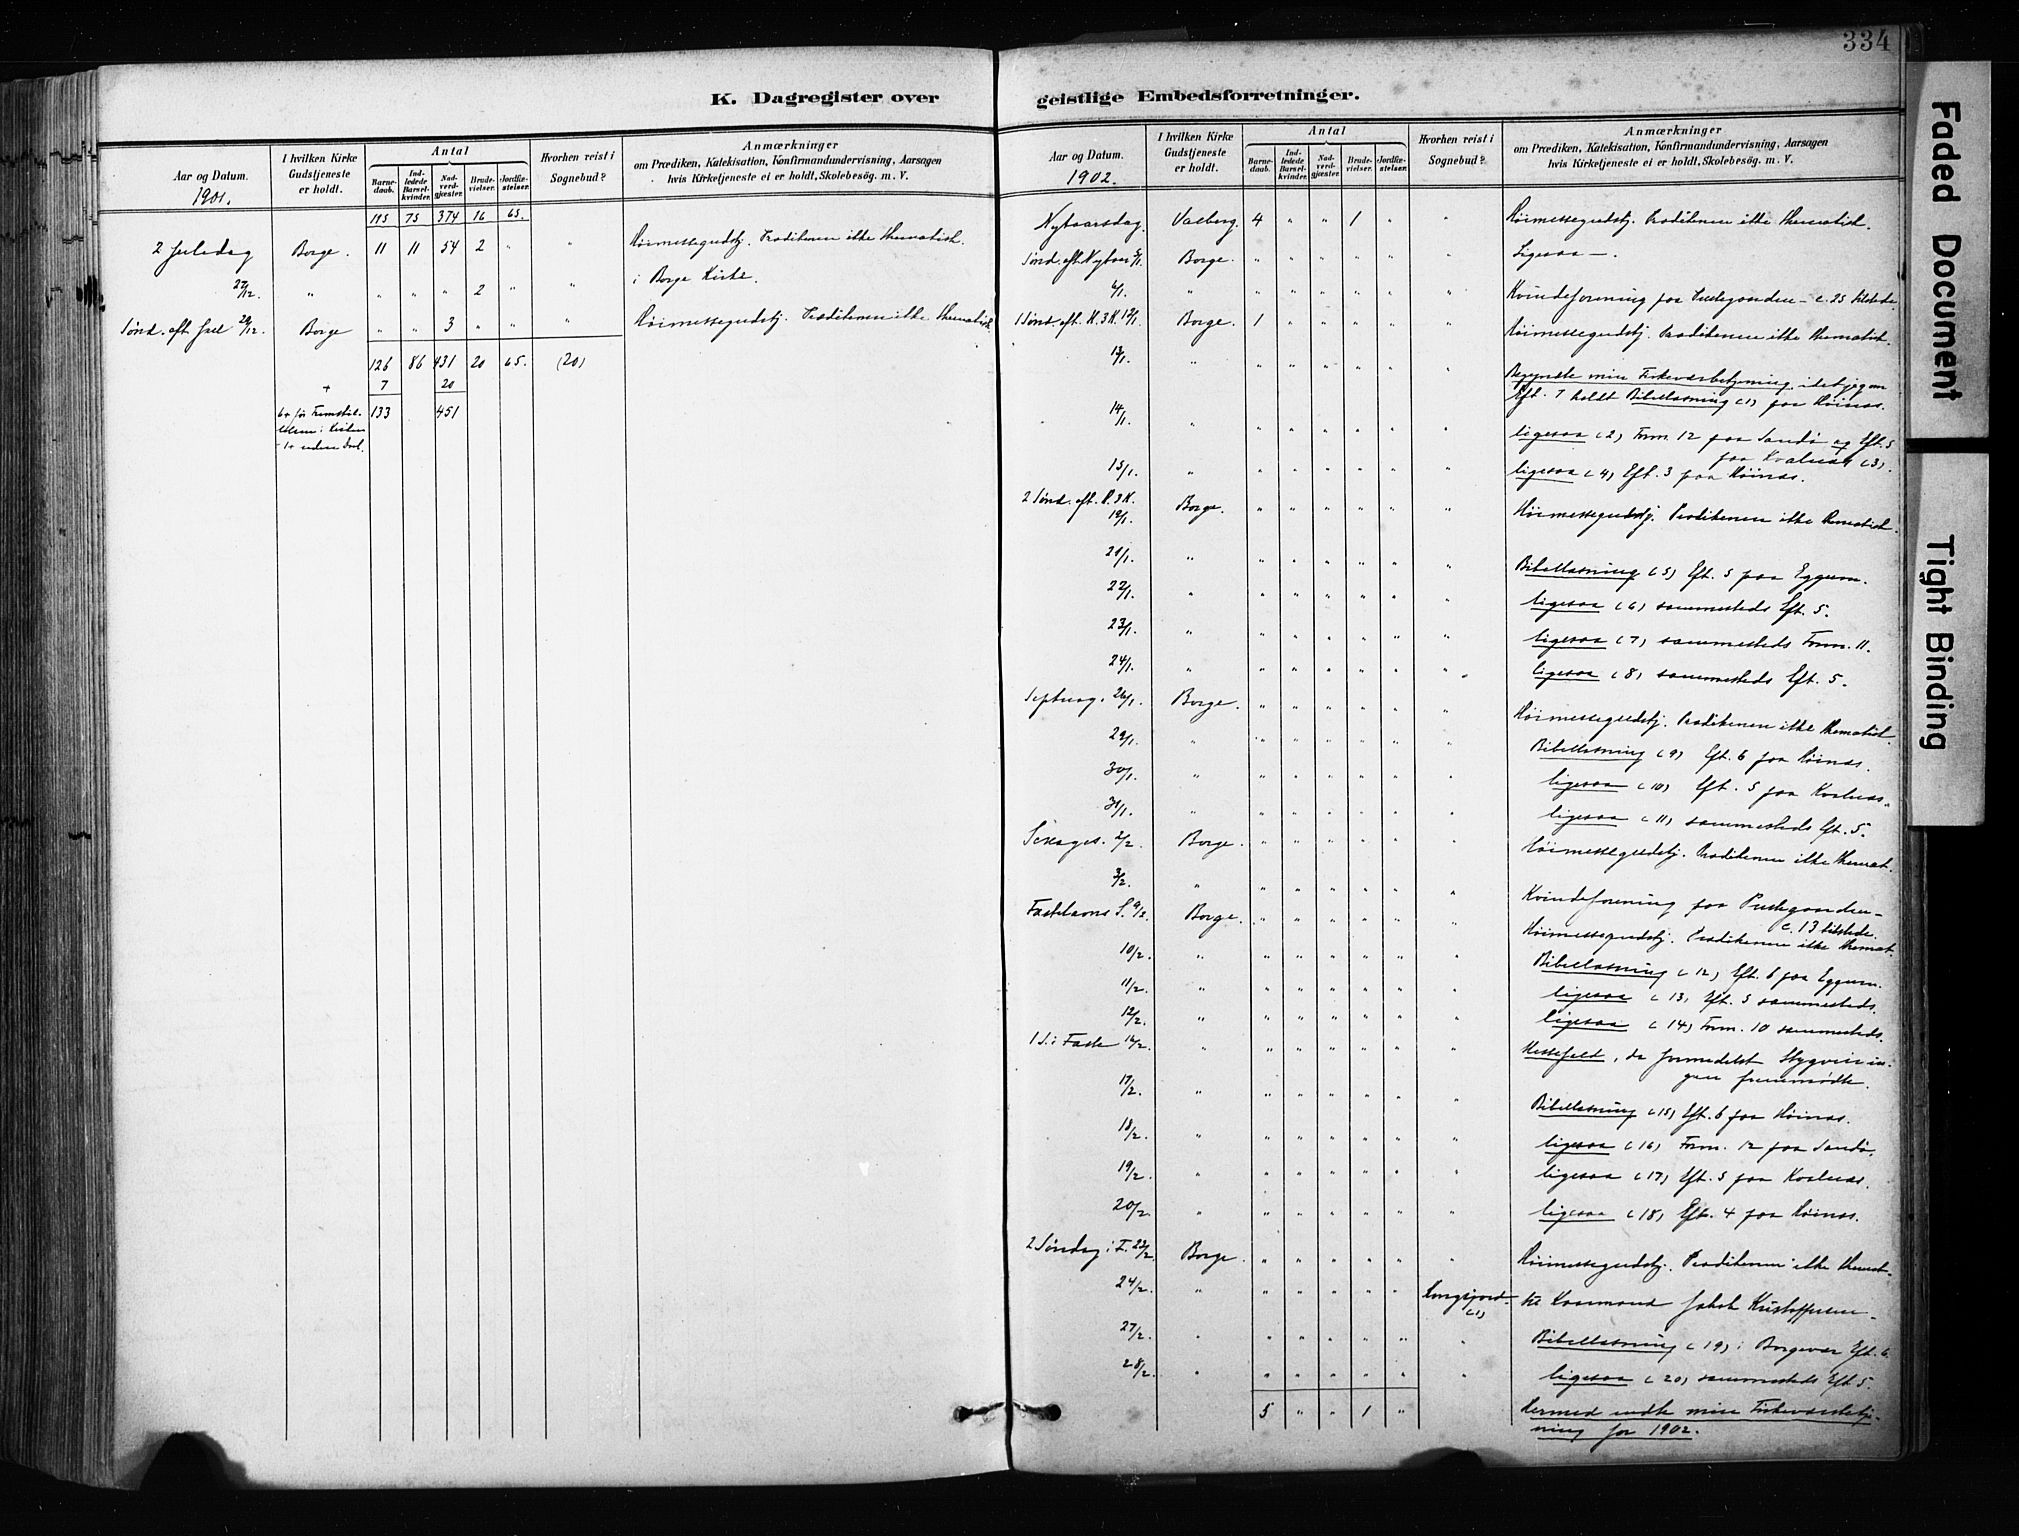 334
K. Dagregister over
geistlige Embedsforretninger.
Aar og Datum.
1901.
I hvilken Kirke
Gudstjeneste
er holdt.
Antal
Barne-
daab.
Ind-
ledede
Barsel-
kvinder.
Nad-
verd-
gjæster.
Brude-
vielser.
Jordfæ-
stelser.
Hvorhen reist i
Sognebud?
Anmærkninger
om Prædiken, Katekisation, Konfirmandundervisning, Aarsagen
hvis Kirketjeneste ei er holdt, Skolebesøg. m. V.
115 75 374 16 65.
2 Juledag Borge. 11 11 54 2 " " Høimessegudstj. Prædikenen ikke thematisk.
27/12. " " " " 2 " " i Borge Kirke.
Sønd. eft. Juel 29/12. Borge " " 3 " " " Høimessegudstj. Prædikenen ikke thematisk
126 86 431 20 65. (20)
+ 7 20
133 451
6 + for
i Kirken
Aar og Datum.
1902.
I hvilken Kirke
Gudstjeneste
er holdt.
Antal
Barne-
daab.
Ind-
ledede
Barsel-
kvinder.
Nad-
verd-
gjæster.
Brude-
vielser.
Jordfæ-
stelser.
Hvorhen reist i
Sognebud?
Anmærkninger
om Prædiken, Katekisation, Konfirmandundervisning, Aarsagen
hvis Kirketjeneste ei er holdt, Skolebesøg. m. V.
Nytaarsdag. Valberg. 4 " " 1 " " Høimessegudstj. Prædikenen ikke thematisk.
Sønd. eft. Nytaar 5/1. Borge. " " " " " " Ligesaa —.
6/1. " " " " " " " Kvindeforening paa Prestegaarden – c. 25 tilstede.
1 Sønd. eft. H. 3 K. 12/1. Borge. 1 " " " " " Høimessegudstj. Prædikenen ikke thematisk.
13/1. " " " " " " " Begyndte min Fiskeværsbetjening, idet jeg om
Eft. 7 holdt Bibellæsning (1) paa Høinæs.
14/1. " " " " " " " ligesaa (2) Form. 12 paa Sandø og Eft. 5
paa Kvalnæs (3).
15/1. " " " " " " " ligesaa (4) Eft. 3 paa Høinæs.
2 Sønd. eft. H. 3 K.
19/1. Borge. " " " " " " Høimessegudstj. Prædikenen ikke thematisk.
21/1. " " " " " " " Bibellæsning (5) Eft. 5 paa Eggum.
22/1. " " " " " " " ligesaa (6) sammesteds Eft. 5.
23/1. " " " " " " " ligesaa (7) sammesteds Form. 11.
24/1. " " " " " " " ligesaa (8) sammesteds Eft. 5.
Septuag. 26/1. Borge. " " " " " " Høimessegudstj. Prædikenen ikke thematisk.
29/1. " " " " " " " Bibellæsning (9) Eft. 6 paa Høinæs.
30/1. " " " " " " " ligesaa (10) Eft. 5 paa Kvalnæs.
31/1. " " " " " " " ligesaa (11) sammesteds Eft. 5.
Sexages. 2/2. Borge. " " " " " " Høimessegudstj. Prædikenen ikke themat.
3/2. " " " " " " " Kvindeforening paa Prestegaarden –
c. 13 tilstede.
Fastelavns S. 9/2. Borge. " " " " " " Høimessegudstj. Prædikenen ikke themat.
10/2. " " " " " " " Bibellæsning (12) Eft. 6 paa Eggum.
11/2. " " " " " " " ligesaa (13) Eft. 5 sammesteds.
12/2. " " " " " " " ligesaa (14) Form. 10 sammesteds.
1 S. i Faste 16/2. " " " " " " " Messefald, da formedelst Stygveir in-
gen fremmødte.
17/2. " " " " " " " Bibellæsning (15) Eft. 6 paa Høinæs.
18/2. " " " " " " " ligesaa (16) Form. 12 paa Sandø.
19/2. " " " " " " " ligesaa (17) Eft. 5 paa Kvalnæs.
20/2. " " " " " " " ligesaa (18) Eft. 4 paa Høinæs.
2 Søndag i F. 23/2. Borge. " " " " " " Høimessegudstj. Prædikenen ikke themat.
24/2. " " " " " " (1) til Jakob Kristoffersen –
27/2. " " " " " " " Bibellæsning (19) i Borgevær Eft. 6.
28/2. " " " " " " " ligesaa (20) sammesteds Eft 5.
5 " " 1 " Hermed endte min Fiskeværsbetje-
ning for 1902.
Faded Document
Tight Binding